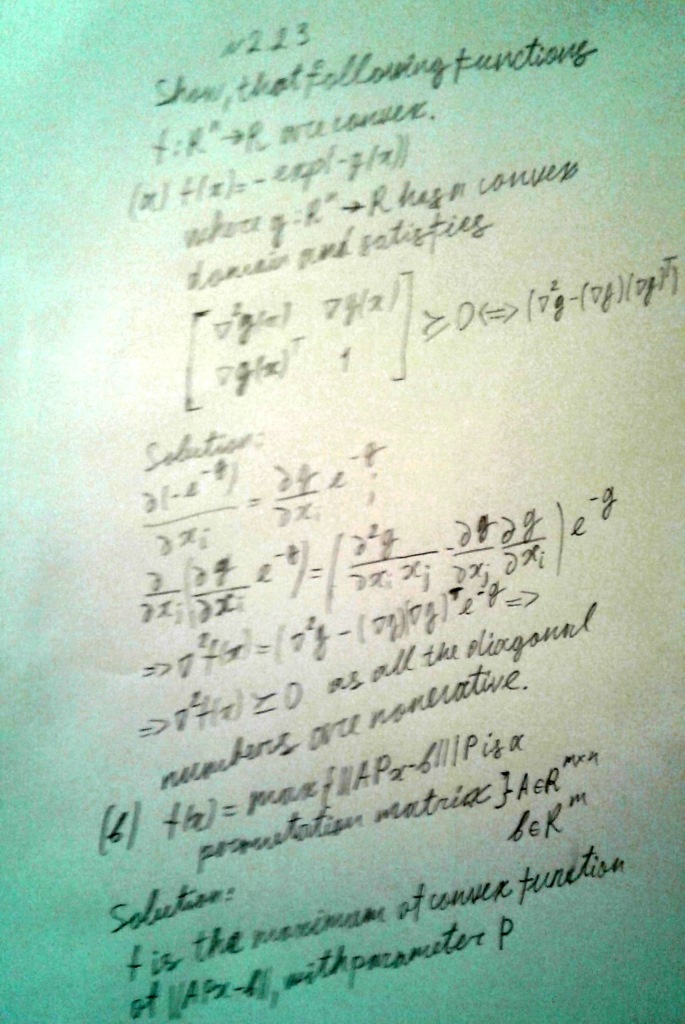 N 2.2.3
Show, that following functions
f: Rⁿ → R are convex.
(a) f(x) = - exp(-g(x))
where g: Rⁿ → R has a convex
domain and satisfies
[ ∇²g(x) ∇g(x) ]
[ ∇g(x)ᵀ 1 ] ≥ 0 <=> (∇²g - (∇g)(∇g)ᵀ)
Solution:
∂(-e^{-g}) / ∂x_i = ∂g/∂x_i e^{-g};
∂/∂x_j (∂g/∂x_i e^{-g}) = (∂²g/∂x_i x_j - ∂g ∂g/∂x_i ∂x_j) e^{-g}
=> ∇²f(x) = (∇²g - (∇g)(∇g)ᵀ e^{-g} =>
=> ∇²f(x) ≥ 0 as all the diagonal
numbers are nonnegative.
(b) f(x) = max { ||APx - b|| | P is a
permutation matrix } A ∈ R^{m×n}
b ∈ R^m
Solution:
f is the maximum of convex function
of ||APx - b||, with parameter P